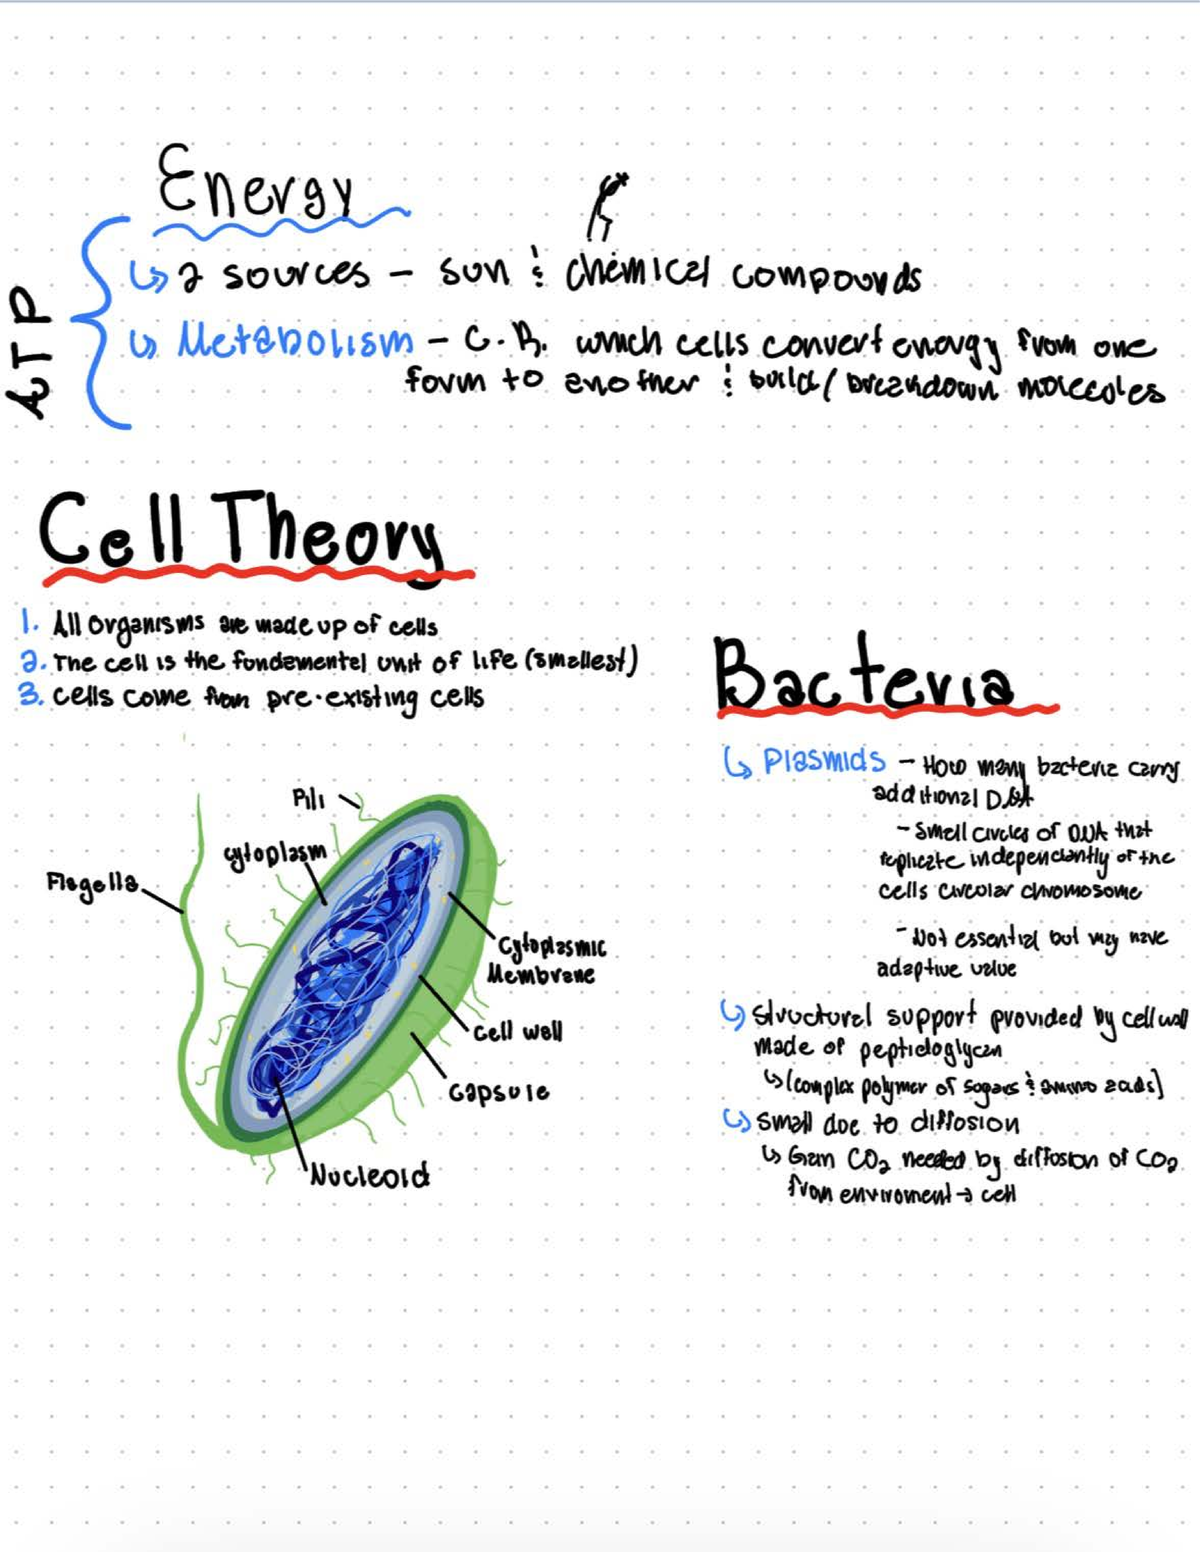 Energy
ATP
↳ 2 sources – sun & chemical compounds
↳ Metabolism – C.R. which cells convert energy from one
form to another & build/breakdown molecules
Cell Theory
1. All organisms are made up of cells
2. The cell is the fundamental unit of life (smallest)
3. cells come from pre-existing cells
Pili
cytoplasm
Flagella
Cytoplasmic
Membrane
cell wall
capsule
Nucleoid
Bacteria
↳ Plasmids – How many bacteria carry
additional DNA
– Small circles of DNA that
replicate independantly of the
cells circular chromosome
– Not essential but may have
adaptive value
↳ structural support provided by cell wall
made of peptidoglycan
↳ (complex polymer of sugars & amino acids)
↳ small due to diffusion
↳ Gain CO₂ needed by diffusion of CO₂
from enviroment → cell